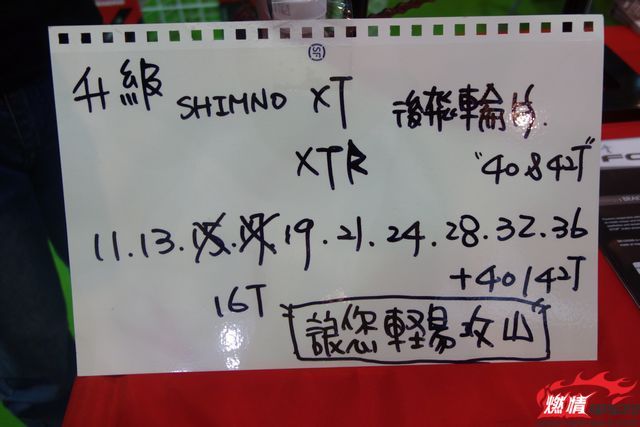 (SF)
升級 SHIMNO XT 後飛輪片.
XTR "40&42T"
11.13.15.17.19.21.24.28.32.36
16T +40/42T
"讓您輕易攻山"
燃情